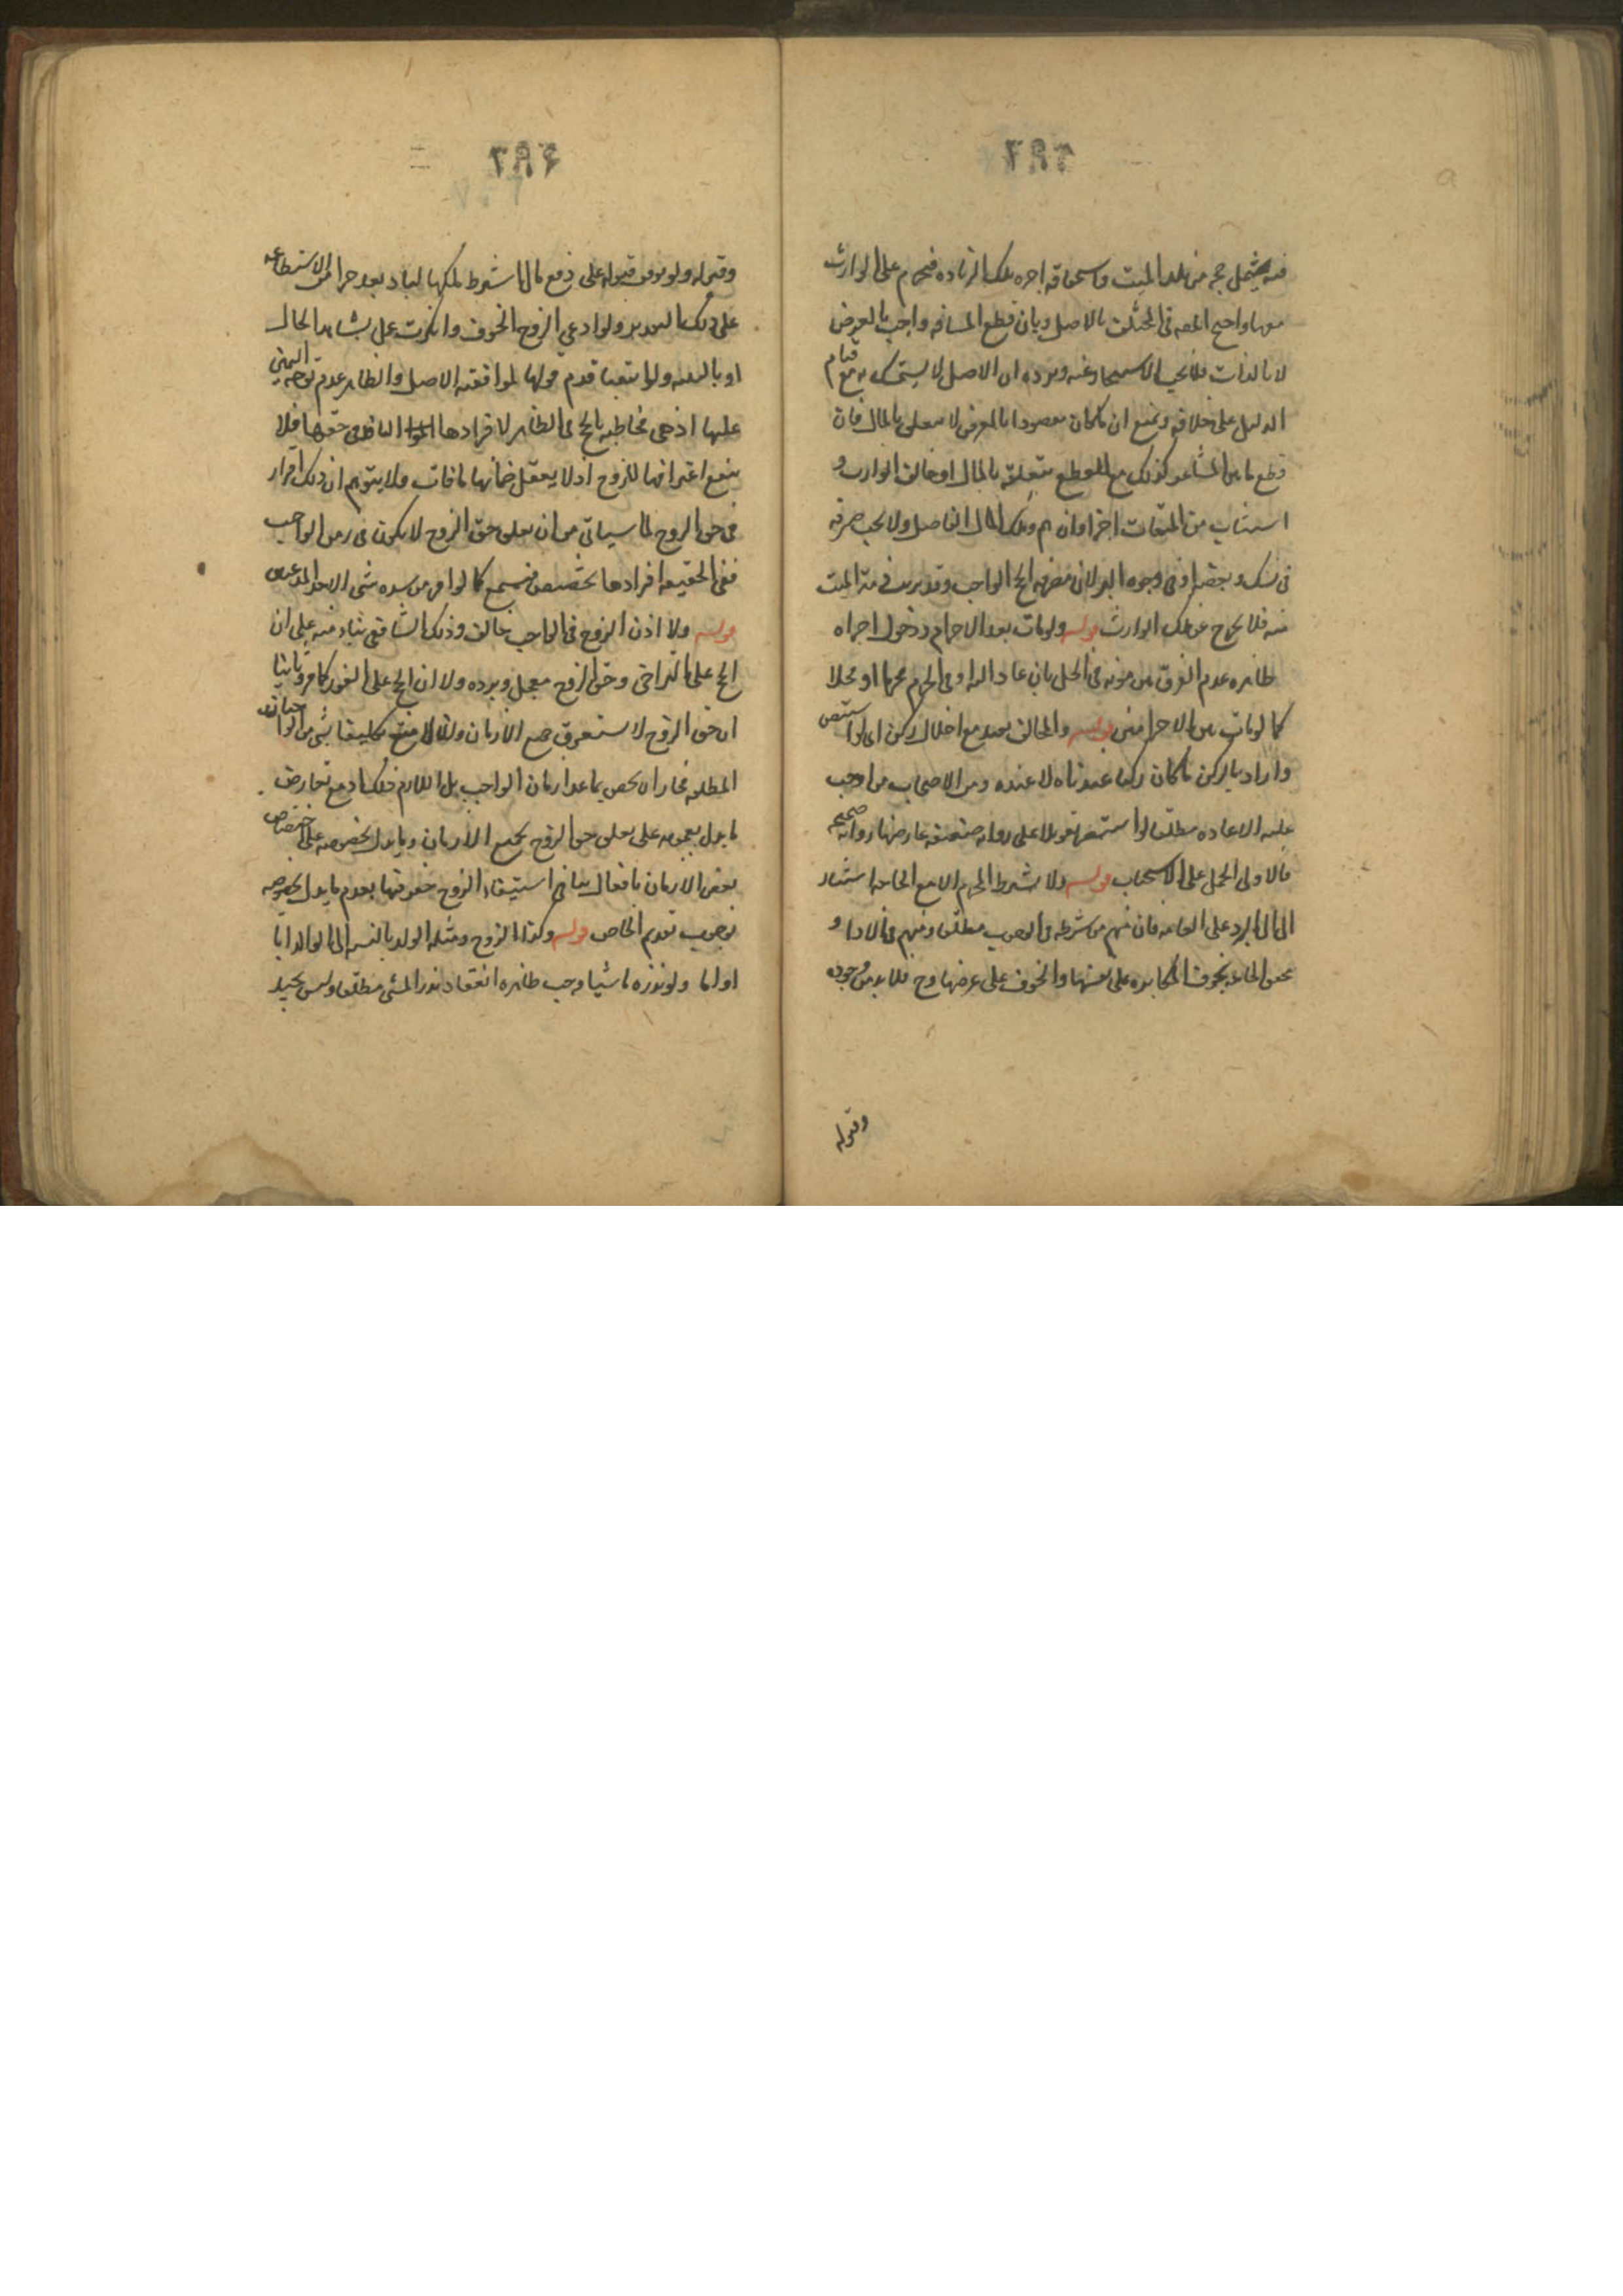 فيه يشمل حجه من بلد الميت واستحقاقه اجره تلك الزياده فيحرم على الوارث
منها واحتج المصنف في المختلف بالاصل وبان قطع المسافه واجب بالعرض
لا بالذات فلا يجب الاستيجار عنه ويرده ان الاصل لا يتمسك به مع قيام
الدليل على خلافه ونمنع ان ما كان مقصودا بالعرض لا يتعلق بالمال فان
قطع ما بين المشاعر كذلك مع القطع بتعلقه بالمال ولو خالف الوارث و
استناب من الميقات اجزا وان اثم وملك المال الفاضل ولا يجب صرفه
في نسك او بعضه او في وجوه البر لان مصرفه الحج الواجب وقد برئت ذمة الميت
منه فلا يخرج عن ملك الوارث قوله ولو مات بعد الاحرام ودخول الحرم اجزاه
ظاهره عدم الفرق بين موته في الحل بان عاد اليه او في الحرم محرما او محلا
كما لو مات بين الاحرامين قوله والمخالف يعيد مع اخلال ركن اي لو استبصر
واراد بالركن ما كان ركنا عندنا لا عنده ومن الاصحاب من اوجب
عليه الاعاده مطلقا لو استبصر تعويلا على روايه ضعيفه عارضها روايه صحيحه
فالاولى الحمل على الاستحباب قوله ولا يشترط المحرم الا مع الحاجه استند
الى الرد على العامه فان منهم من شرطه في الوجوب مطلقا ومنهم في الادا و
تحقق الحاجه بخوف المكابره على نفسها والخوف على عرضها وح فلا بد من وجوده
وقبوله
وقبوله ولو توقف قبوله على دفع مال اشترط ملكها لما زاد بعد جزا من الاستطاعه
على ذلك التقدير ولو ادعى الزوج الخوف وانكرت عمل بشاهد الحال
او بالبينه ولو انتفيا قدم قولها لموافقته الاصل والظاهر عدم توجه اليمين
عليها اذ هي مخاطبه بالحج في الظاهر لاقرارها النافذ في حقها فلا
ينفع اعترافها للزوج اذ لا يعقل ضمانها ما فات ولا يتوهم ان ذلك اقرار
في حق الزوج لما سياتي من ان تعلق حق الزوج لا يكون في زمن الواجب
ففي الحقيقه اقرارها تخصيص فيسمع كما لو اقر من بيده شي لاحد المدعيين
قوله ولا اذن الزوج في الواجب خالف في ذلك الشافعي بناء منه على ان
الحج على التراخي وحق الزوج معجل ويرده ولا ان الحج على الفور كما مر وثانيا
ان حق الزوج لا يستغرق جميع الازمان والا لامتنع تكليفها بشي من الواجبات
المطلقه فجاز ان يخص بما عدا زمان الواجب بل اللازم ذلك اذ مع تعارض
ما يدل بعمومه على تعلق حق الزوج بجميع الازمان وما يدل بخصوصه على اختصاص
بعض الازمان بافعال ينافي استيفاء الزوج حقوقها يقدم ما يدل بخصوصه
لوجوب تقديم الخاص قوله وكذا الزوج ومثله الولد بالنسبه الى الوالد ابا
او اما ولو نذره ماشيا وجب ظاهره انعقاد نذر المشي مطلقا وليس بجيد